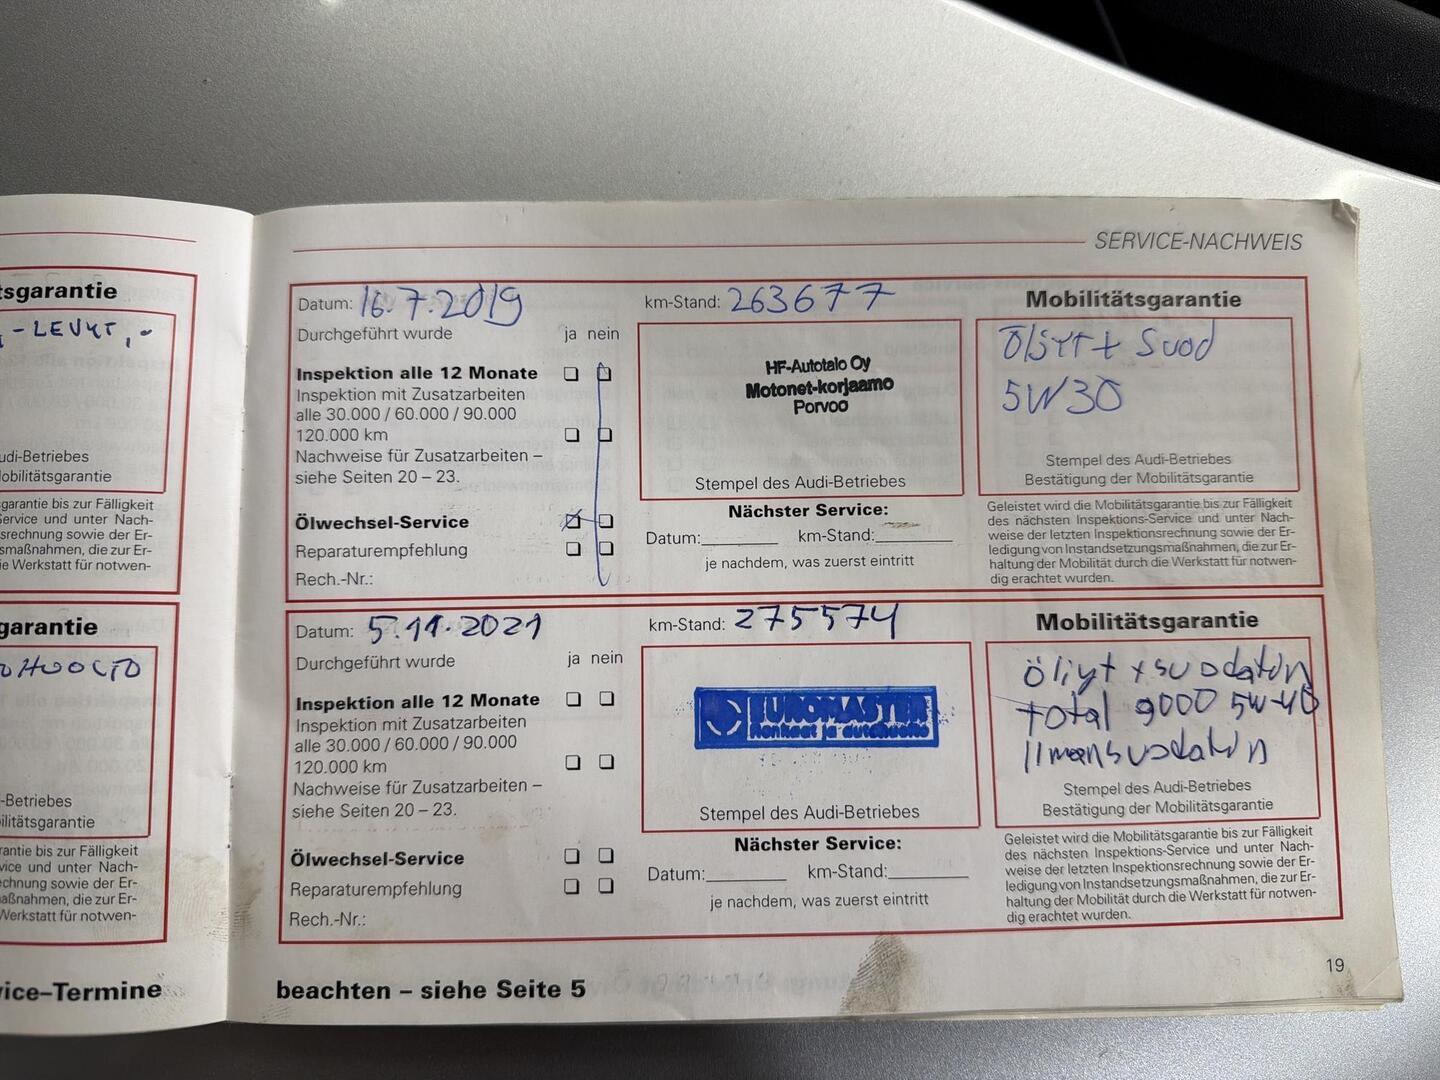 SERVICE-NACHWEIS
tsgarantie
-LEVYT,-
udi-Betriebes
obilitätsgarantie
garantie bis zur Fälligkeit
Service und unter Nach-
srechnung sowie der Er-
smaßnahmen, die zur Er-
ie Werkstatt für notwen-
garantie
-Betriebes
ilitätsgarantie
rantie bis zur Fälligkeit
vice und unter Nach-
chnung sowie der Er-
aßnahmen, die zur Er-
Werkstatt für notwen-
vice–Termine
Datum: 16.7.2019
km-Stand: 263677
Durchgeführt wurde ja nein
Inspektion alle 12 Monate
Inspektion mit Zusatzarbeiten
alle 30.000 / 60.000 / 90.000
120.000 km
Nachweise für Zusatzarbeiten –
siehe Seiten 20 – 23.
Ölwechsel-Service
Reparaturempfehlung
Rech.-Nr.:
HF-Autotalo Oy
Motonet-korjaamo
Porvoo
Stempel des Audi-Betriebes
Nächster Service:
Datum: km-Stand:
je nachdem, was zuerst eintritt
Mobilitätsgarantie
Öljyt + Suod
5W30
Stempel des Audi-Betriebes
Bestätigung der Mobilitätsgarantie
Geleistet wird die Mobilitätsgarantie bis zur Fälligkeit
des nächsten Inspektions-Service und unter Nach-
weise der letzten Inspektionsrechnung sowie der Er-
ledigung von Instandsetzungsmaßnahmen, die zur Er-
haltung der Mobilität durch die Werkstatt für notwen-
dig erachtet wurden.
Datum: 5.11.2021
km-Stand: 275574
Durchgeführt wurde ja nein
Inspektion alle 12 Monate
Inspektion mit Zusatzarbeiten
alle 30.000 / 60.000 / 90.000
120.000 km
Nachweise für Zusatzarbeiten –
siehe Seiten 20 – 23.
Ölwechsel-Service
Reparaturempfehlung
Rech.-Nr.:
EUROMASTER
Renkaat ja autohuolto
Stempel des Audi-Betriebes
Nächster Service:
Datum: km-Stand:
je nachdem, was zuerst eintritt
Mobilitätsgarantie
öljyt + suodatin
total 9000 5W-40
ilmansuodatin
Stempel des Audi-Betriebes
Bestätigung der Mobilitätsgarantie
Geleistet wird die Mobilitätsgarantie bis zur Fälligkeit
des nächsten Inspektions-Service und unter Nach-
weise der letzten Inspektionsrechnung sowie der Er-
ledigung von Instandsetzungsmaßnahmen, die zur Er-
haltung der Mobilität durch die Werkstatt für notwen-
dig erachtet wurden.
19
beachten – siehe Seite 5